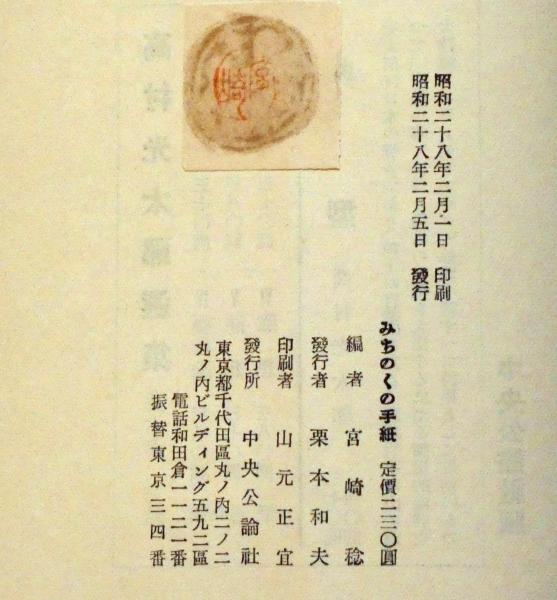 昭和二十八年二月一日 印刷
昭和二十八年二月五日 發行
みちのくの手紙 定價二三〇圓
編者 宮崎稔
發行者 栗本和夫
印刷者 山元正宜
發行所 中央公論社
東京都千代田區丸ノ內二ノ二
丸ノ內ビルディング五九二區
電話和田倉一一二一番
振替東京三四番
宮崎
高村光太郎選集